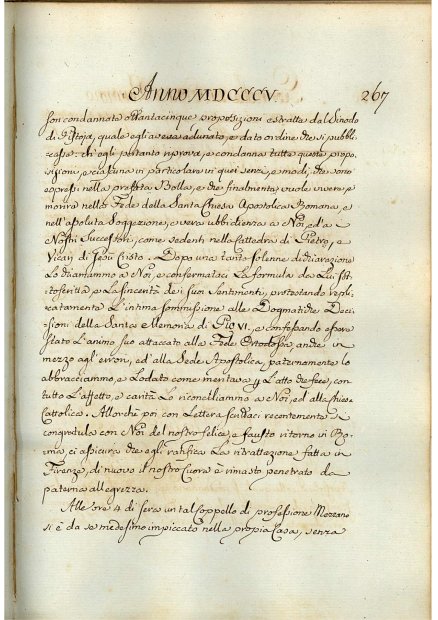 Anno MDCCCV. 267
son condannate ottantacinque proposizioni estratte dal Sinodo
di Pistoja, quale egli aveva adunato, e dato ordine che si pubbli-
casse: ch'egli pertanto riprova, e condanna tutte queste propo-
sizioni, e ciascuna in particolare in quei sensi, e modi, che sono
espressi nella prefata Bolla, e che finalmente vuole vivere, e
morire nella Fede della Santa Chiesa Apostolica Romana, e
nell'assoluta Soggezione, e vera ubbidienza a Noi, ed a i
Nostri Successori, come sedenti nella Cattedra di Pietro, e
Vicarj di Jesù Cristo. Dopo una tanto solenne dichiarazione
Lo chiamammo a Noi, e confermataci La formula da Lui sot-
toscritta, e La sincerità dei suoi Sentimenti, protestando repli-
catamente L'intima sommissione alle Dogmatiche Deci-
sioni della Santa Memoria di Pio VI, e confessando essere
stato L'animo suo attaccato alla Fede Ortodossa, anche in
mezzo agl'errori, ed alla Sede Apostolica, paternamente lo
abbracciammo, e Lodato come meritava p L'atto che fece, con
tutto L'affetto, e carità Lo riconciliammo a Noi, ed alla Chiesa
Cattolica. Allorchè poi con Lettera scrittaci recentemente si
congratula con Noi del nostro felice, e fausto ritorno in Ro-
ma, ci assicura che egli ratifica La ritrattazione fatta in
Firenze, di nuovo il nostro Cuore è rimasto penetrato da
paterna allegrezza.
Alle ore 4 di sera un tal Coppello di professione
si è da se medesimo impiccato nella propia Casa, senza